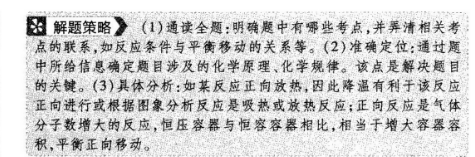 解题策略 (1)通读全题:明确题中有哪些考点,并弄清相关考
点的联系,如反应条件与平衡移动的关系等。(2)准确定位:通过题
中所给信息确定题目涉及的化学原理、化学规律。该点是解决题目
的关键。(3)具体分析:如某反应正向放热,因此降温有利于该反应
正向进行或根据图象分析反应是吸热或放热反应;正向反应是气体
分子数增大的反应,恒压容器与恒容容器相比,相当于增大容器容
积,平衡正向移动。